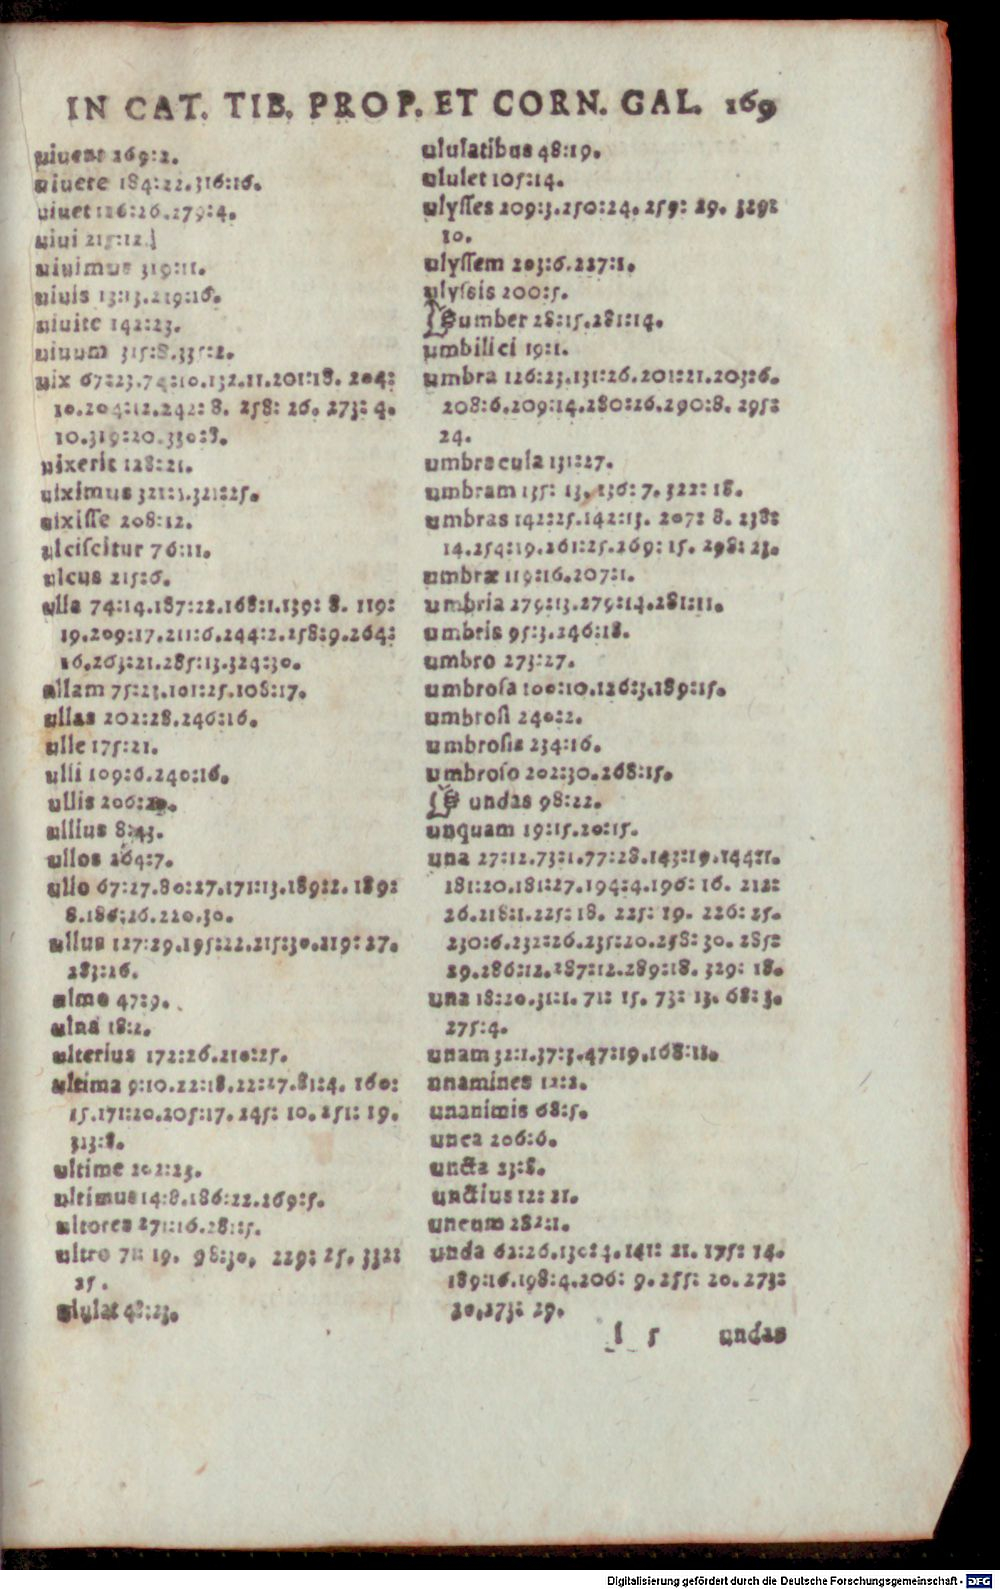 IN CAT. TIB. PROP. ET CORN. GAL. 169
uiuent 269:2.
uiuere 184:22.316:16.
uiuet 126:26.279:4.
uiui 215:12.
uiuimus 319:11.
uiuis 13:13.219:16.
uiuite 142:23.
uiuum 315:8.335:2.
uix 67:23.74:10.132.11.201:18. 204:
10.204:12.242: 8. 258: 26. 273: 4.
10.319:20.330:8.
uixerit 128:21.
uiximus 321:3.321:25.
uixisse 208:12.
ulciscitur 76:11.
ulcus 215:6.
ulla 74:14.187:22.168:1.139: 8. 119:
19.209:17.211:6.244:2.258:9.264:
16.263:21.285:13.324:30.
ullam 75:23.101:25.108:17.
ullas 202:28.246:16.
ulle 175:21.
ulli 109:6.240:16.
ullis 206:
ullius 8:43.
ullos 264:7.
ullo 67:27.80:27.171:13.189:2. 189:
8.186:26.220.30.
ullus 127:29.195:22.215:30.219: 27.
283:26.
ulmo 47:9.
ulna 18:2.
ulterius 172:26.210:25.
ultima 9:10.22:18.22:27.81:4. 160:
15.171:20.205:17. 245: 10. 251: 19.
313:8.
ultime 202:23.
ultimus 14:8.186:22.269:5.
ultores 271:16.28:15.
ultro 71: 19. 98:30. 229: 25. 332:
25.
ululat 48:23.
ululatibus 48:19.
ululet 105:14.
ulysses 209:3.250:24. 259: 29. 329:
10.
ulyssem 203:6.237:1.
ulyssis 200:5.
umber 28:15.281:14.
umbilici 19:1.
umbra 126:23.131:26.201:21.203:6.
208:6.209:14.280:26.290:8. 295:
24.
umbracula 131:27.
umbram 135: 13. 136: 7. 322: 18.
umbras 142:25.142:13. 207: 8. 238:
14.254:19.261:25.269: 15. 298: 23.
umbræ 119:16.207:1.
umbria 279:13.279:14.281:11.
umbris 95:3.246:18.
umbro 273:27.
umbrosa 100:10.126:3.189:15.
umbrosi 240:2.
umbrosis 234:16.
umbroso 202:30.268:15.
undas 98:22.
unquam 19:15.20:15.
una 27:12.73:1.77:28.143:19.144:1.
181:20.181:27.194:4.196: 16. 212:
26.218:1.225: 18. 225: 19. 226: 25.
230:6.232:26.235:20.258: 30. 285:
29.286:12.287:12.289:18. 329: 18.
una 18:20.31:1. 71: 15. 73: 13. 68: 3.
275:4.
unam 32:1.37:3.47:19.168:11.
unamines 12:2.
unanimis 68:5.
unca 206:6.
uncta 23:8.
unctius 12: 21.
uncum 282:1.
unda 62:26.130:4.141: 21. 175: 14.
189:16.198:4.206: 9. 255: 20. 273:
20.273: 29.
ſ 5 undas
Digitalisierung gefördert durch die Deutsche Forschungsgemeinschaft - DFG